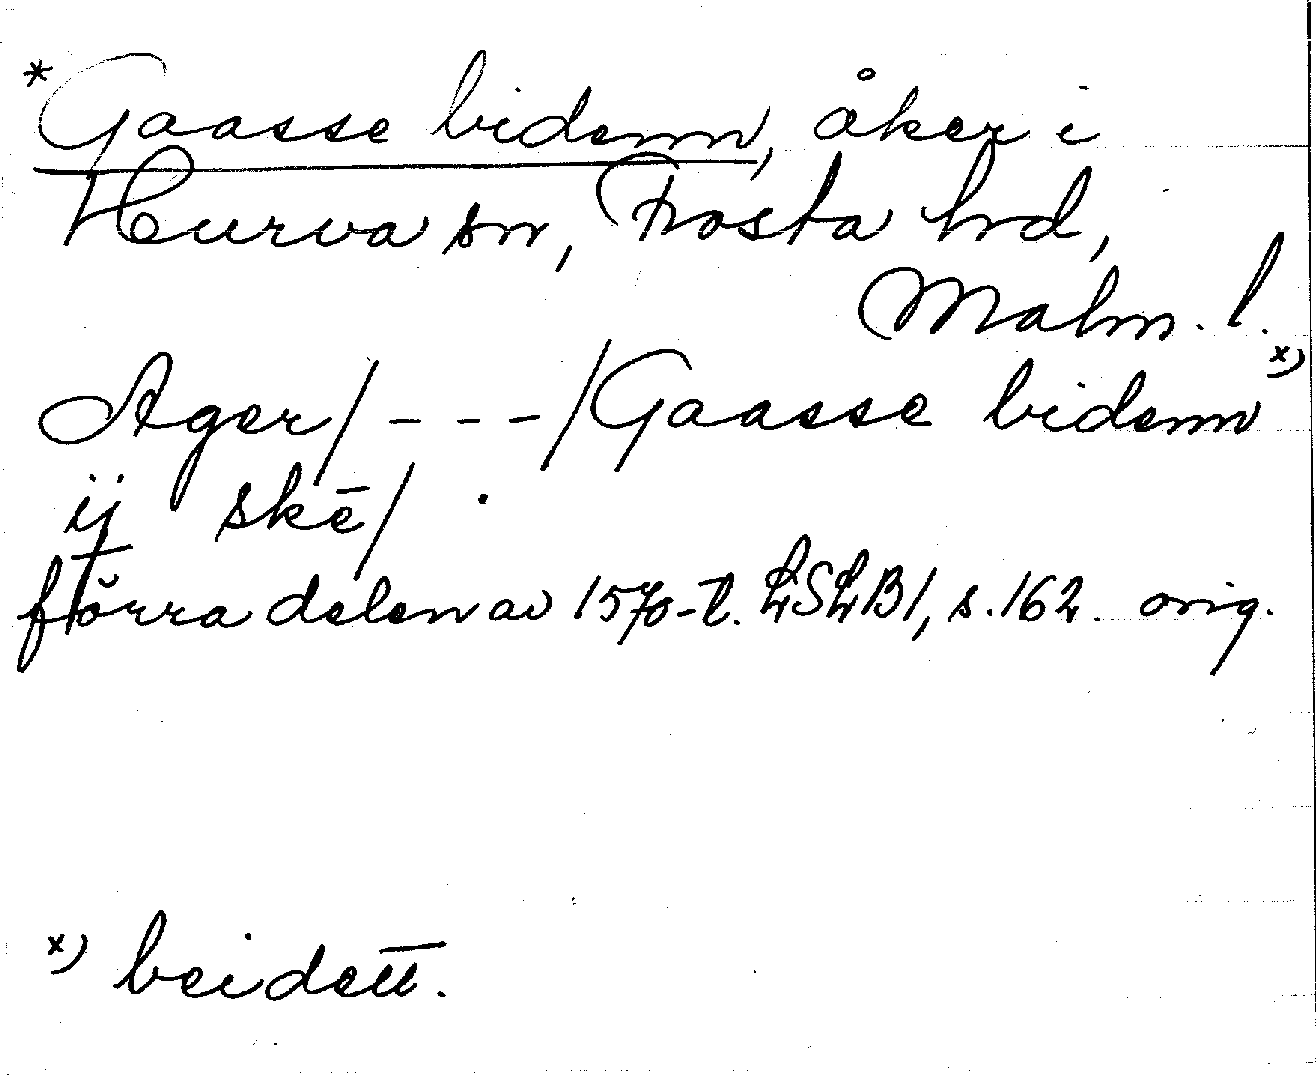 *Gaasse bidenn, åker i
Hurva sn, Frosta hd,
Malm. l.
Ager/ - - - /Gaasse bidenn x)
ij skē/ .
förra delen av 1570-t. LSLB1, s. 162. orig.
x) beidett.